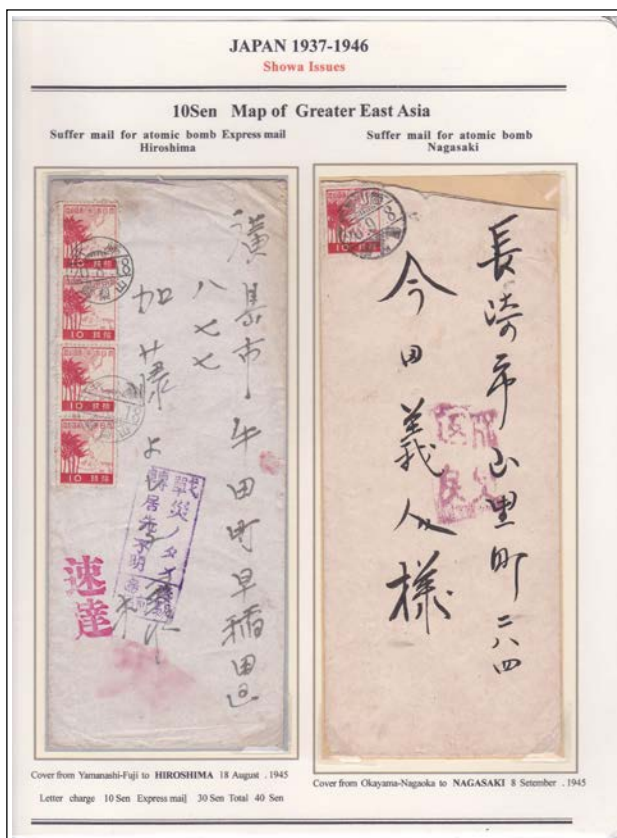 JAPAN 1937-1946
Showa Issues
10Sen Map of Greater East Asia
Suffer mail for atomic bomb Express mail
Hiroshima
Suffer mail for atomic bomb
Nagasaki
廣島市牛田町早稲田区
八七七
加藤よ
戰災ノタメ
轉居先不明
速達
10
10
10
10
長崎市山里町二八四
今田義人様
10
Cover from Yamanashi-Fuji to HIROSHIMA 18 August . 1945
Letter charge 10 Sen Express mail 30 Sen Total 40 Sen
Cover from Okayama-Nagaoka to NAGASAKI 8 Setember . 1945